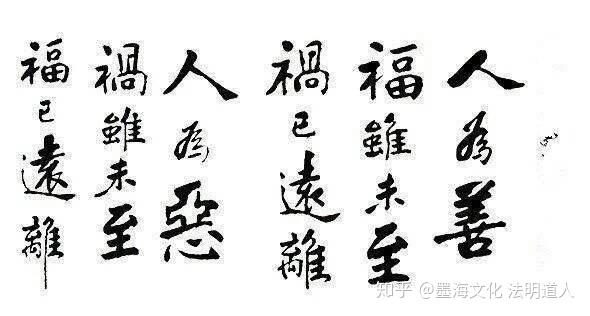 人为善
福雖未至
禍已遠離
人为惡
禍雖未至
福已遠離
知乎 @墨海文化 法明道人